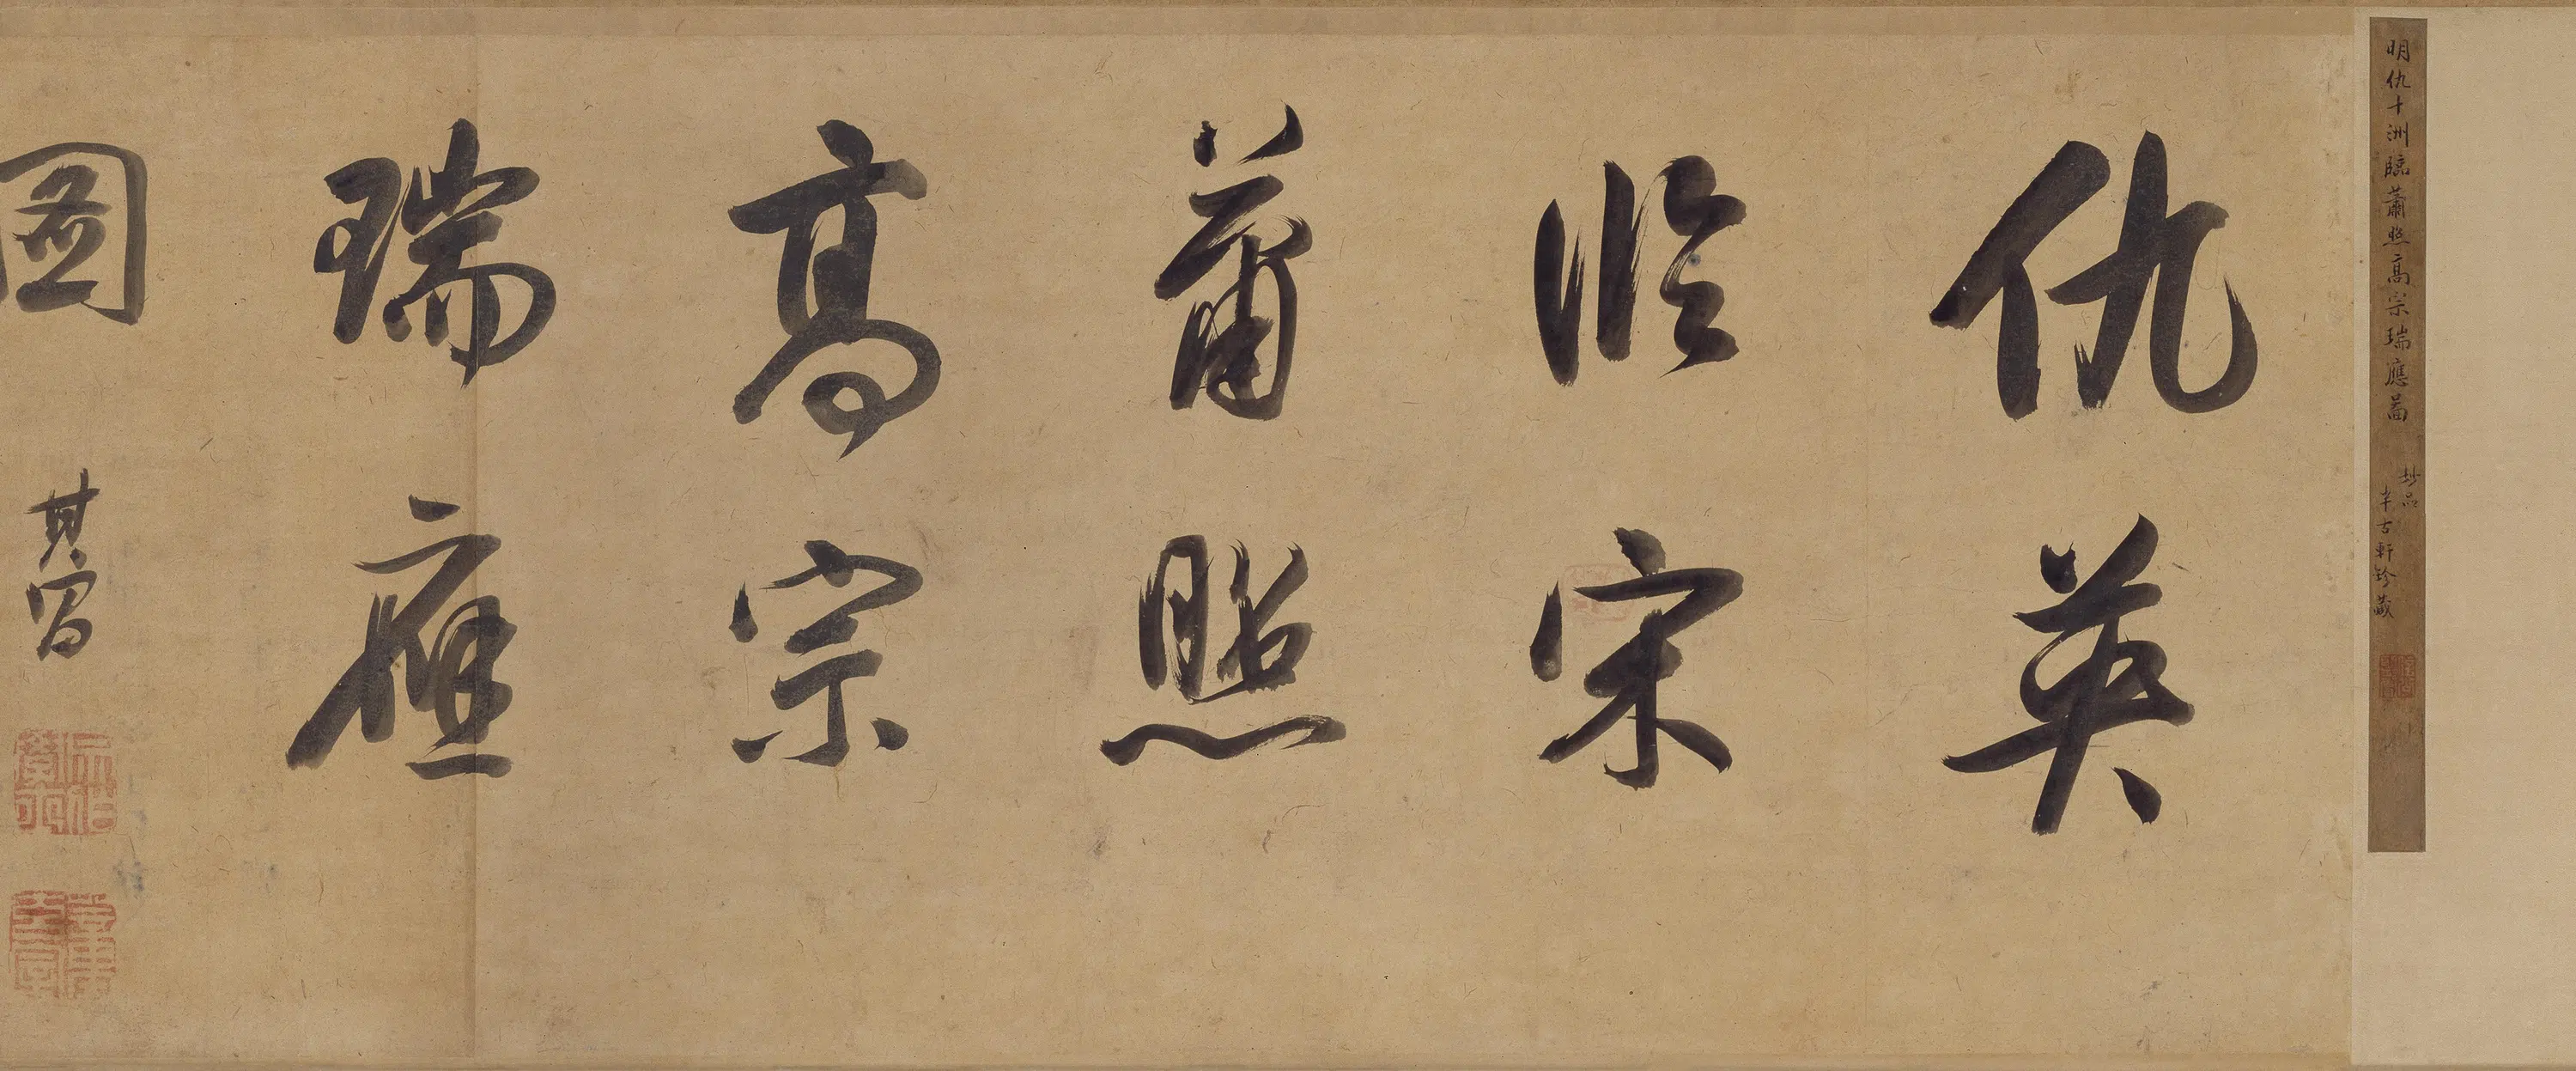 明仇十洲臨蕭照高宗瑞應圖
妙品
半古軒珍藏
仇英
臨宋
蕭照
高宗
瑞應
圖
其昌